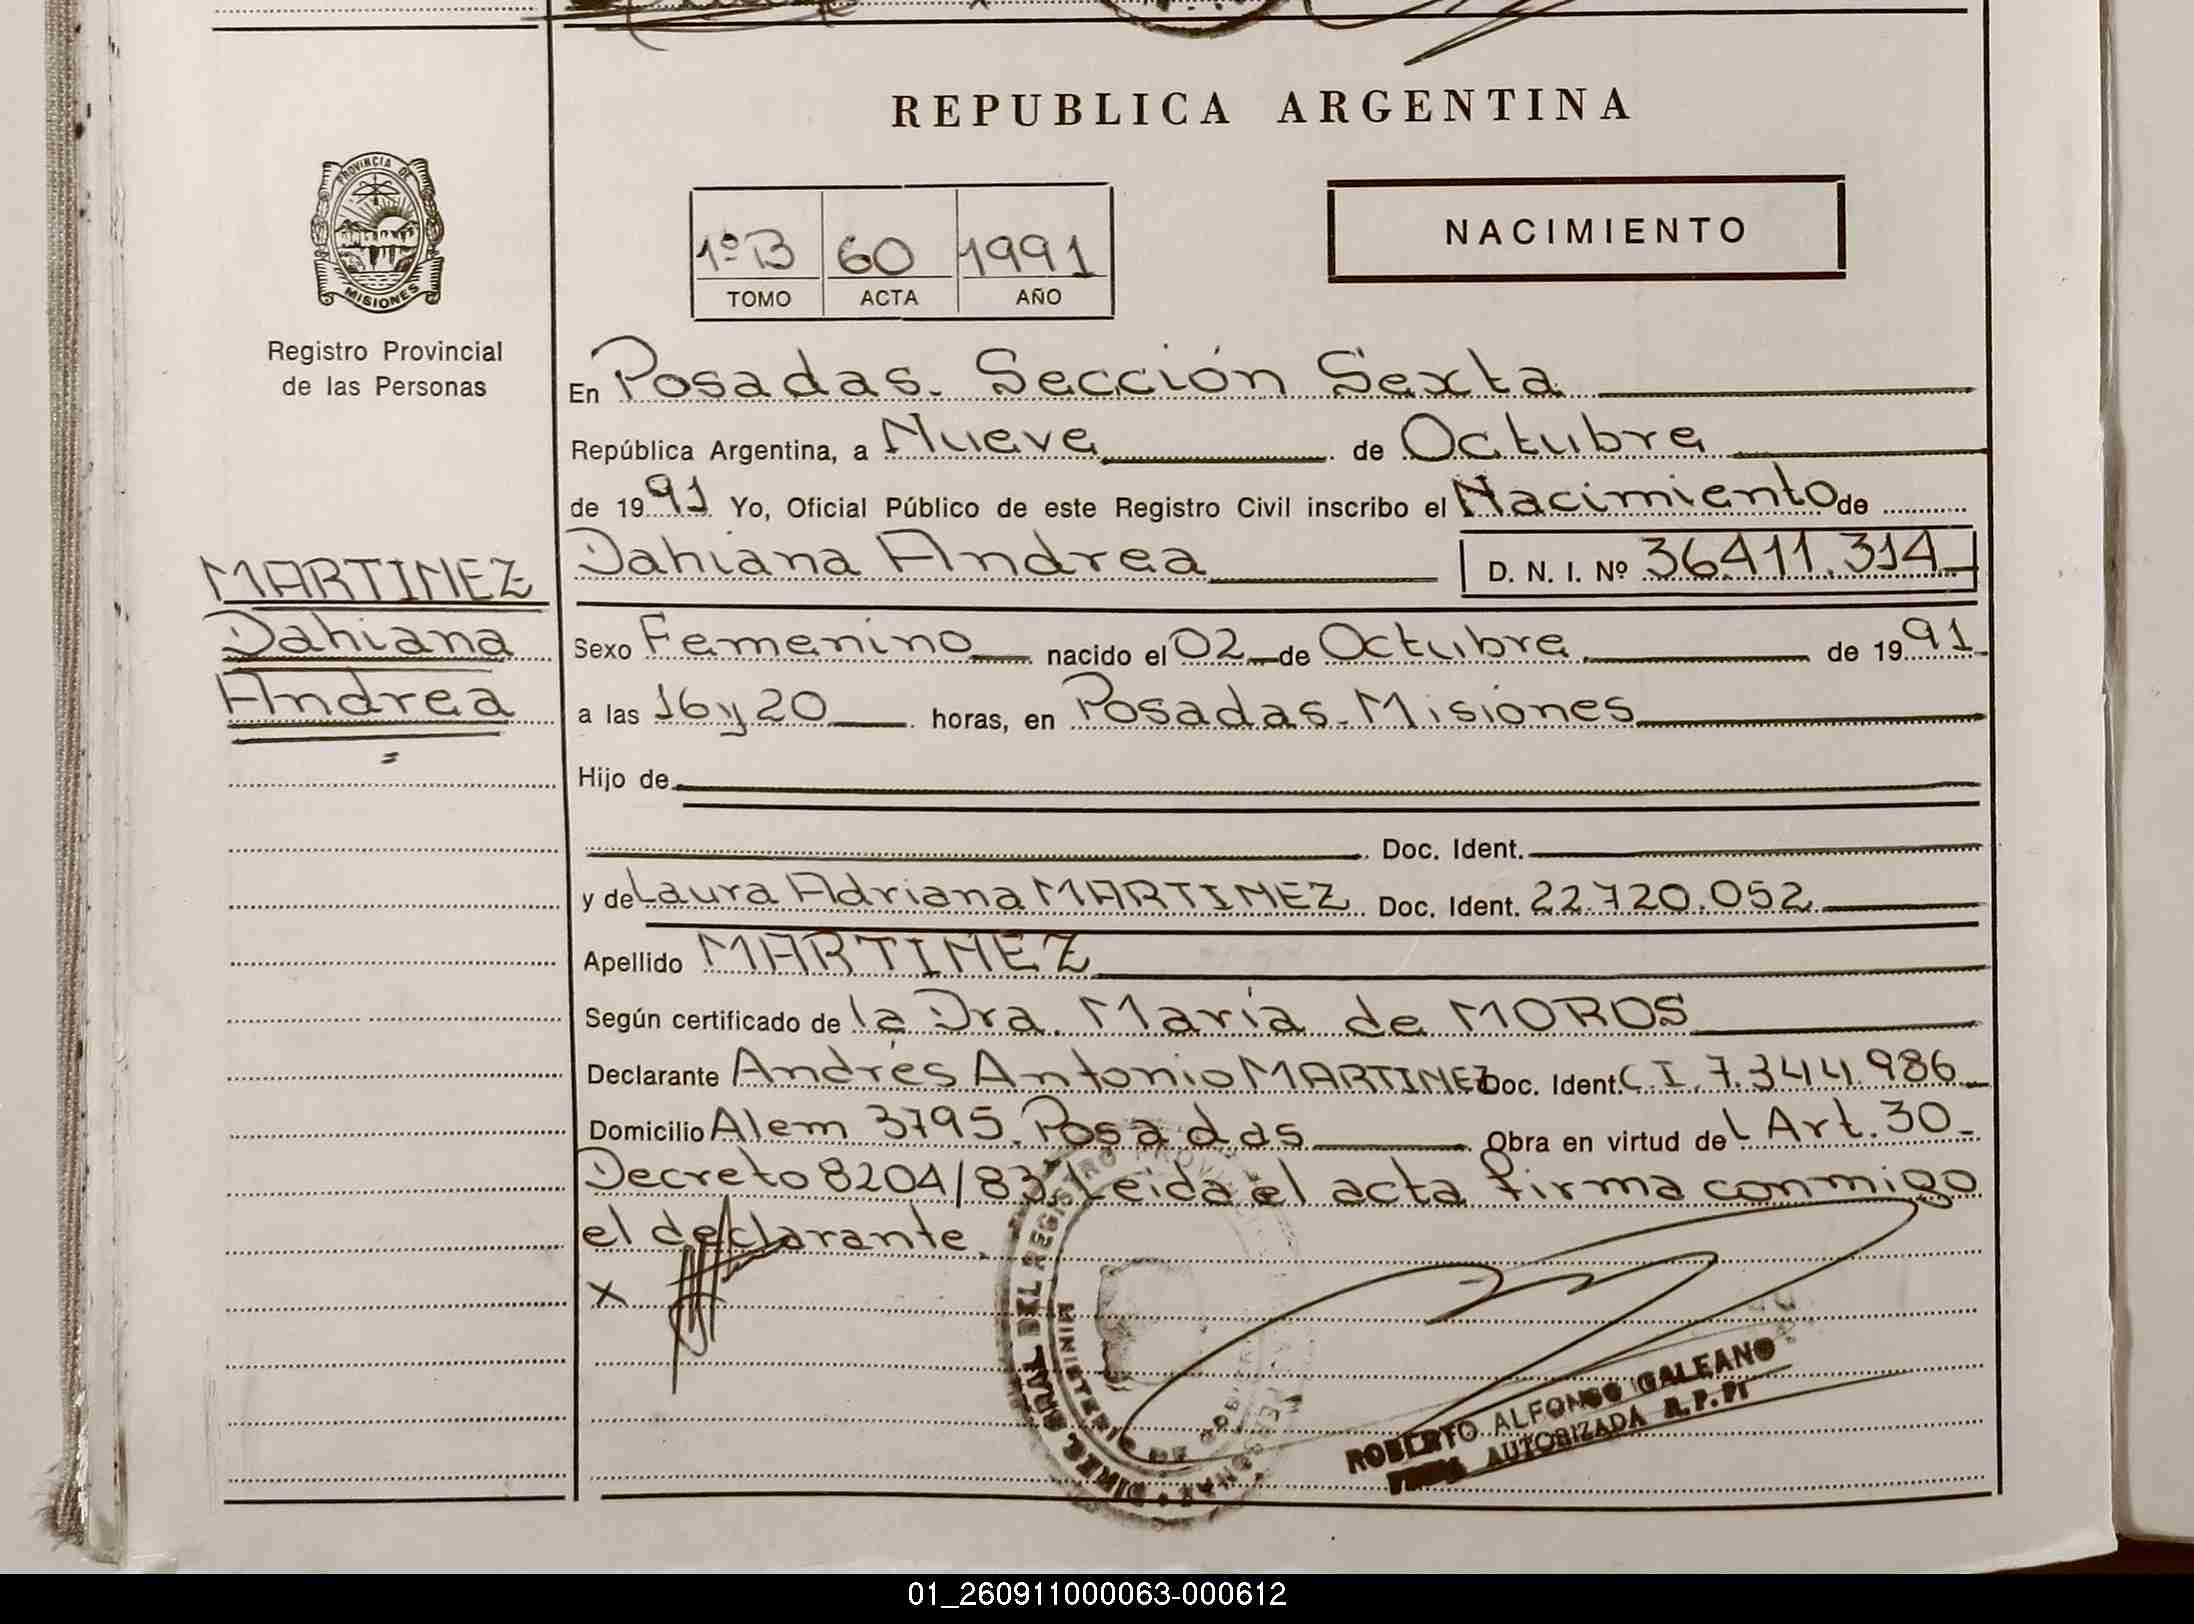 REPUBLICA ARGENTINA
PROVINCIA DE
MISIONES
Registro Provincial
de las Personas
1º B 60 1991
TOMO ACTA AÑO
NACIMIENTO
En Posadas. Sección Sexta
República Argentina, a Nueve de Octubre
de 1991 Yo, Oficial Público de este Registro Civil inscribo el Nacimiento de
Dahiana Andrea D. N. I. Nº 36.411.314
MARTINEZ
Dahiana
Andrea
Sexo Femenino nacido el 02 de Octubre de 1991
a las 16 y 20 horas, en Posadas-Misiones
Hijo de
Doc. Ident.
y de Laura Adriana MARTINEZ Doc. Ident. 22.720.052
Apellido MARTINEZ
Según certificado de la Dra. María de MOROS
Declarante Andrés Antonio MARTINEZ Doc. Ident. C.I. 7.344.986
Domicilio Alem 3795. Posadas Obra en virtud del Art. 30
Decreto 8204/83. Leida el acta firma conmigo
el declarante.
x
DIREC. GRAL. DEL REGISTRO PROVINCIAL
MINISTERIO DE GOBIERNO
ROBERTO ALFONSO GALEANO
FIRMA AUTORIZADA R.P.P.
01_260911000063-000612